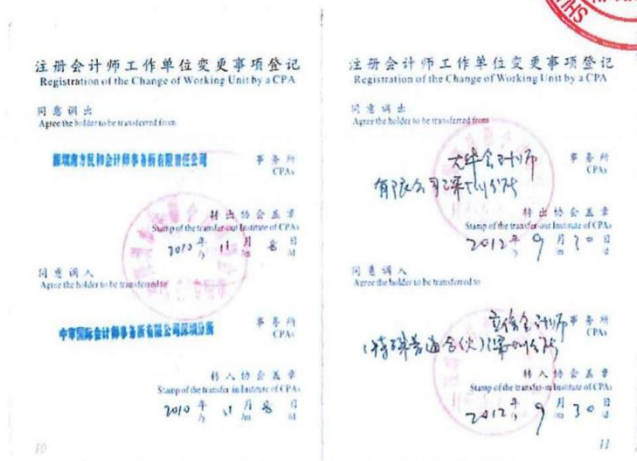 注册会计师工作单位变更事项登记
Registration of the Change of Working Unit by a CPA
同意调出
Agree the holder to be transferred from
深圳南方民和会计师事务所有限责任公司
事务所
CPAs
转出协会盖章
Stamp of the transfer-out Institute of CPAs
2010年11月8日
/y /m /d
同意调入
Agree the holder to be transferred to
中审国际会计师事务所有限公司深圳分所
事务所
CPAs
转入协会盖章
Stamp of the transfer-in Institute of CPAs
2010年11月8日
/y /m /d
10
注册会计师工作单位变更事项登记
Registration of the Change of Working Unit by a CPA
同意调出
Agree the holder to be transferred from
大华会计师
事务所
CPAs
有限公司深圳分所
转出协会盖章
Stamp of the transfer-out Institute of CPAs
2012年9月30日
/y /m /d
同意调入
Agree the holder to be transferred to
立信会计师
事务所
CPAs
(特殊普通合伙)深圳分所
转入协会盖章
Stamp of the transfer-in Institute of CPAs
2012年9月30日
/y /m /d
11